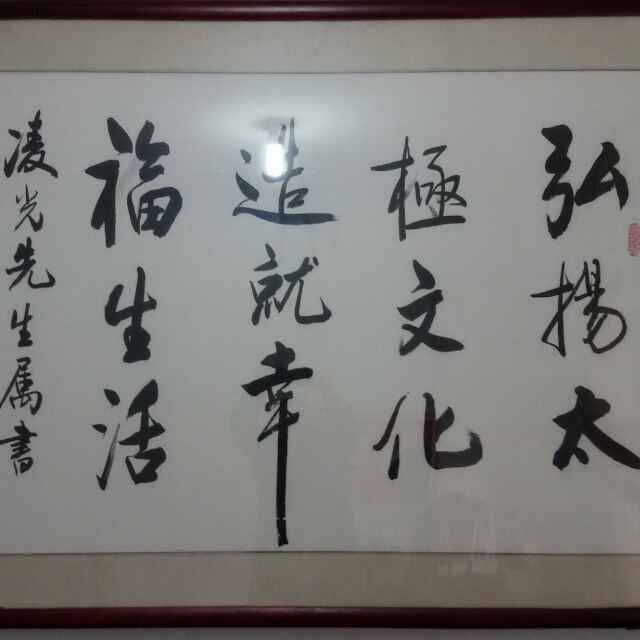 弘揚太
極文化
造就幸
福生活
凌光先生属書